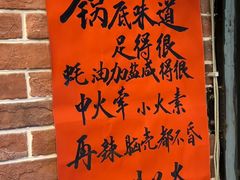 锅底味道
足得很
蚝油加盐咸得很
中火荤 小火素
再辣脑壳都不昏